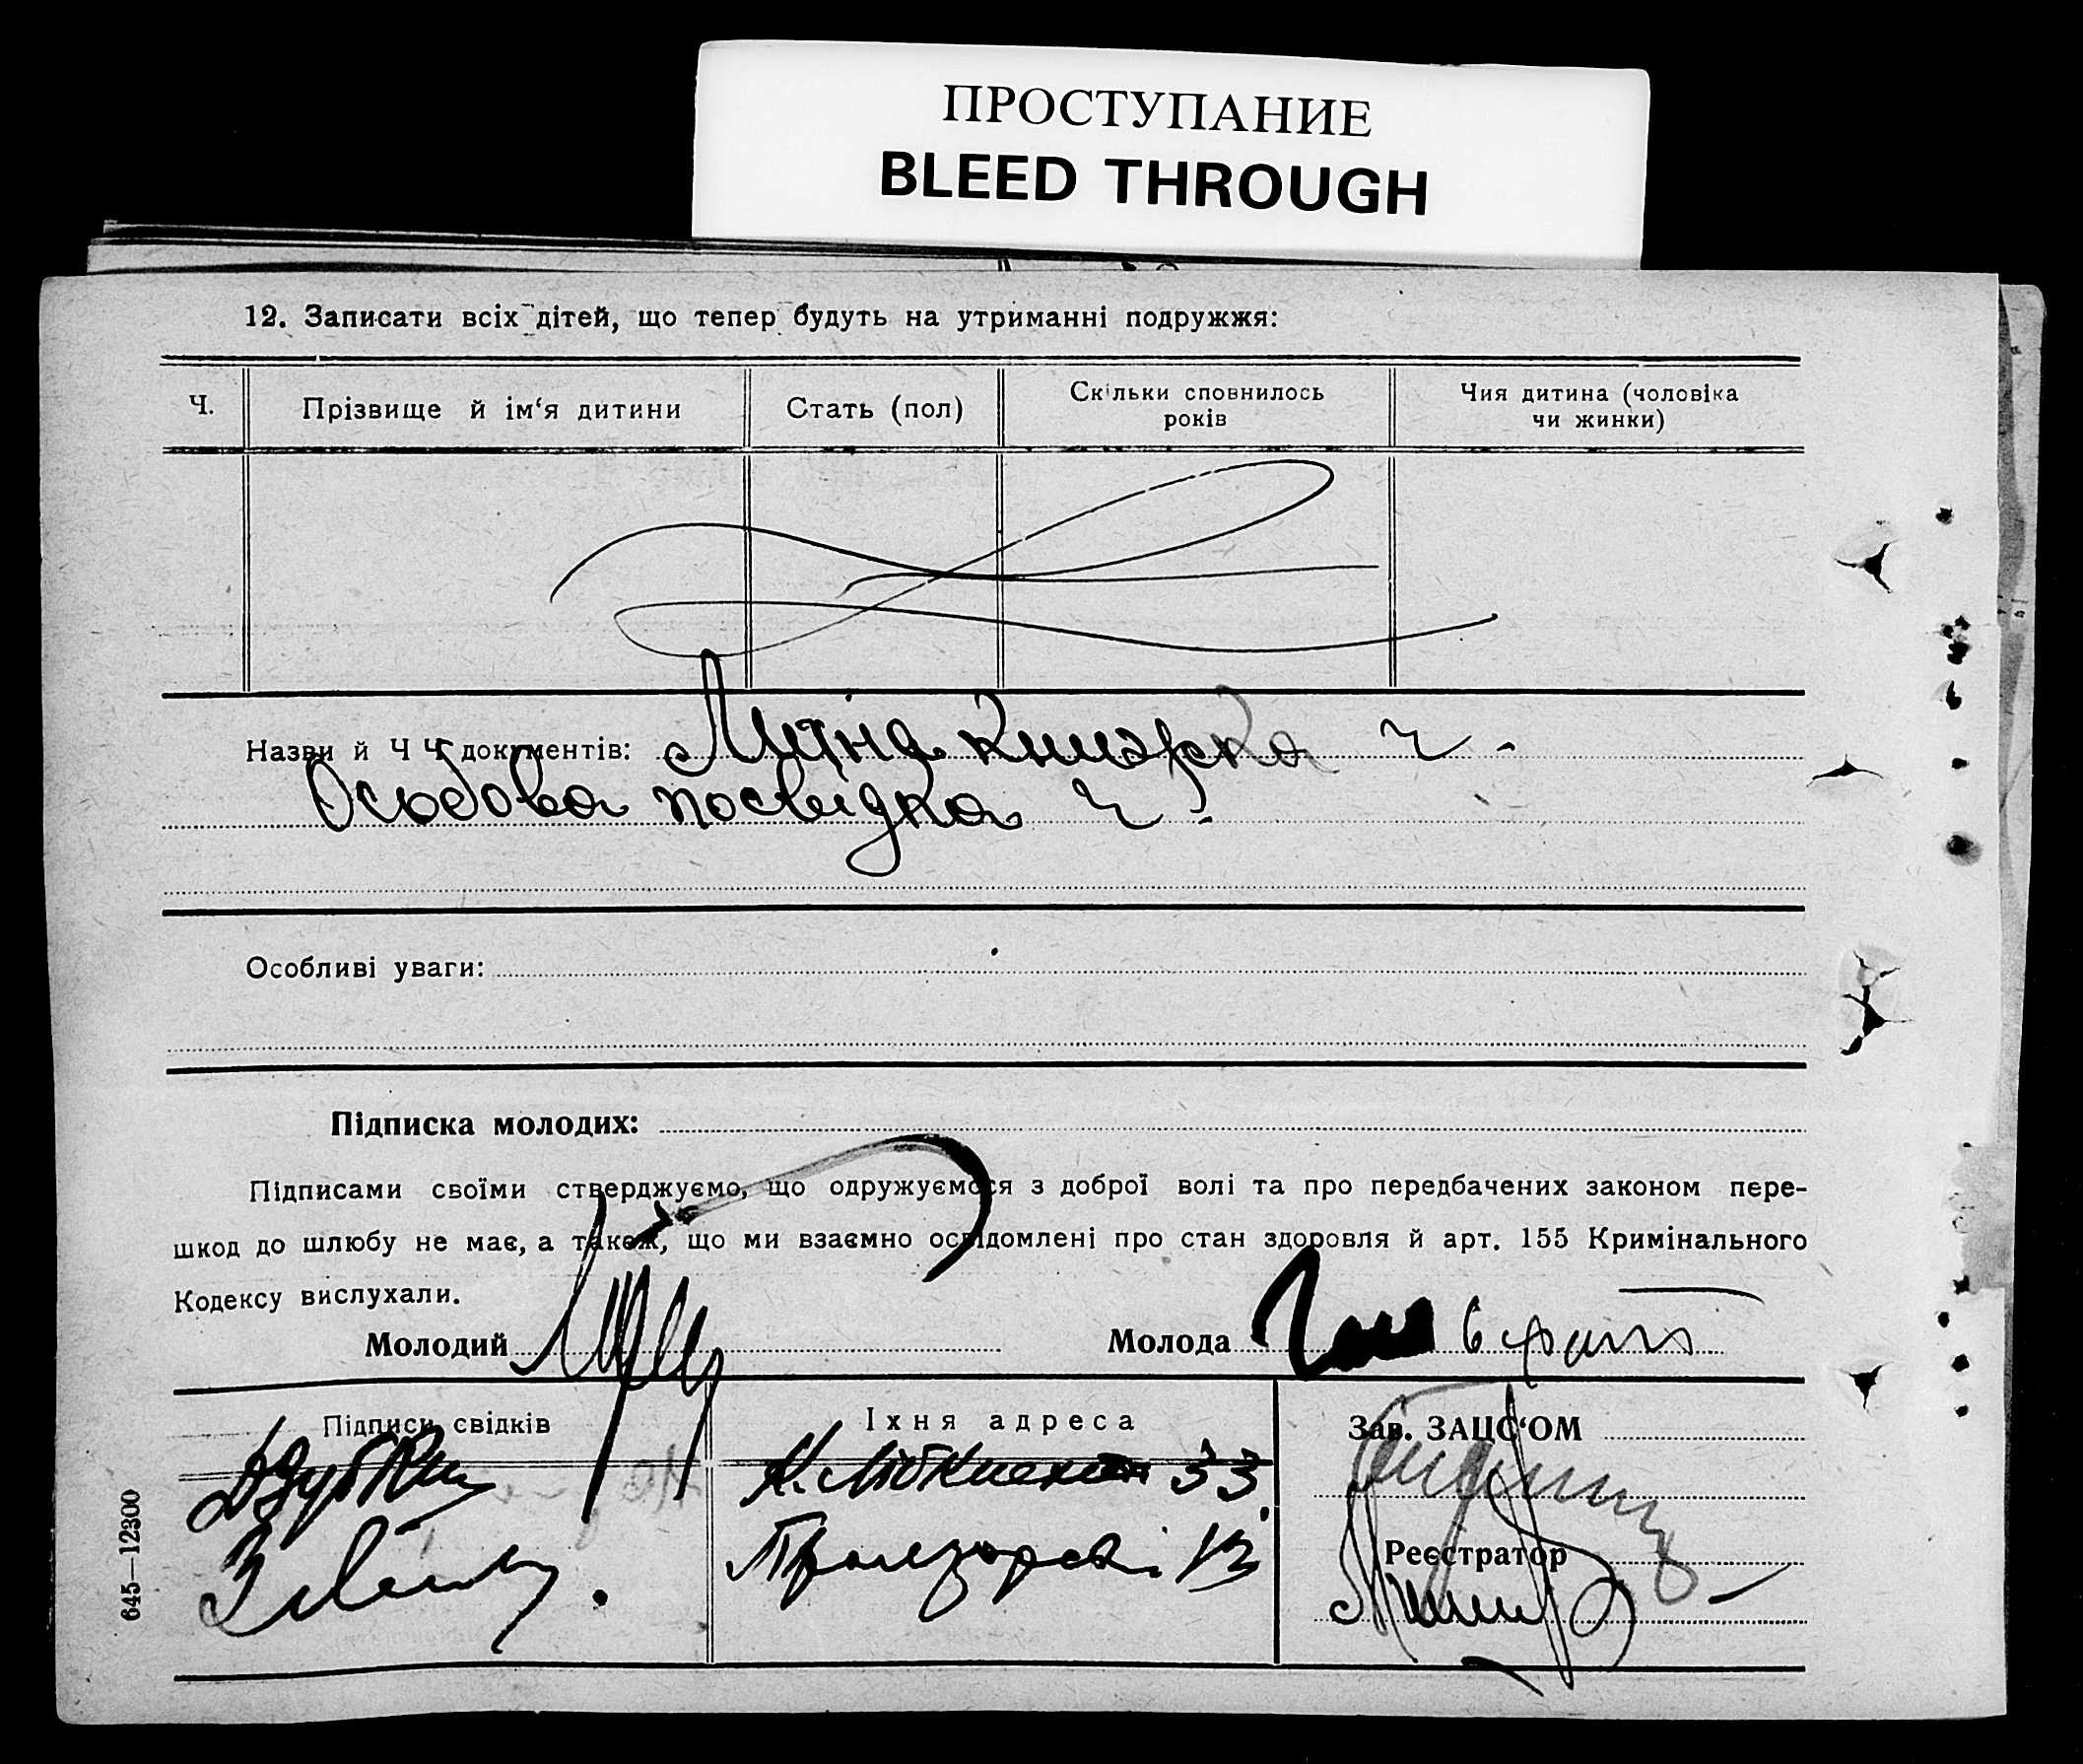 ПРОСТУПАНИЕ
BLEED THROUGH
12. Записати всіх дітей, що тепер будуть на утриманні подружжя:
Ч.
Прізвище й ім‘я дитини
Стать (пол)
Скільки сповнилось
років
Чия дитина (чоловіка
чи жинки)
Назви й Ч Ч документів: ч -
Особова посвідка ч -
Особливі уваги:
Підписка молодих:
Підписами своїми стверджуємо, що одружуємося з доброї волі та про передбачених законом пере-
шкод до шлюбу не має, а також, що ми взаємно освідомлені про стан здоровля й арт. 155 Кримінального
Кодексу вислухали.
Молодий
Молода
Підписи свідків
Їхня адреса
Зав. ЗАЦС‘ОМ
К. Лібкнехта 33
13
Реєстратор
645—12300